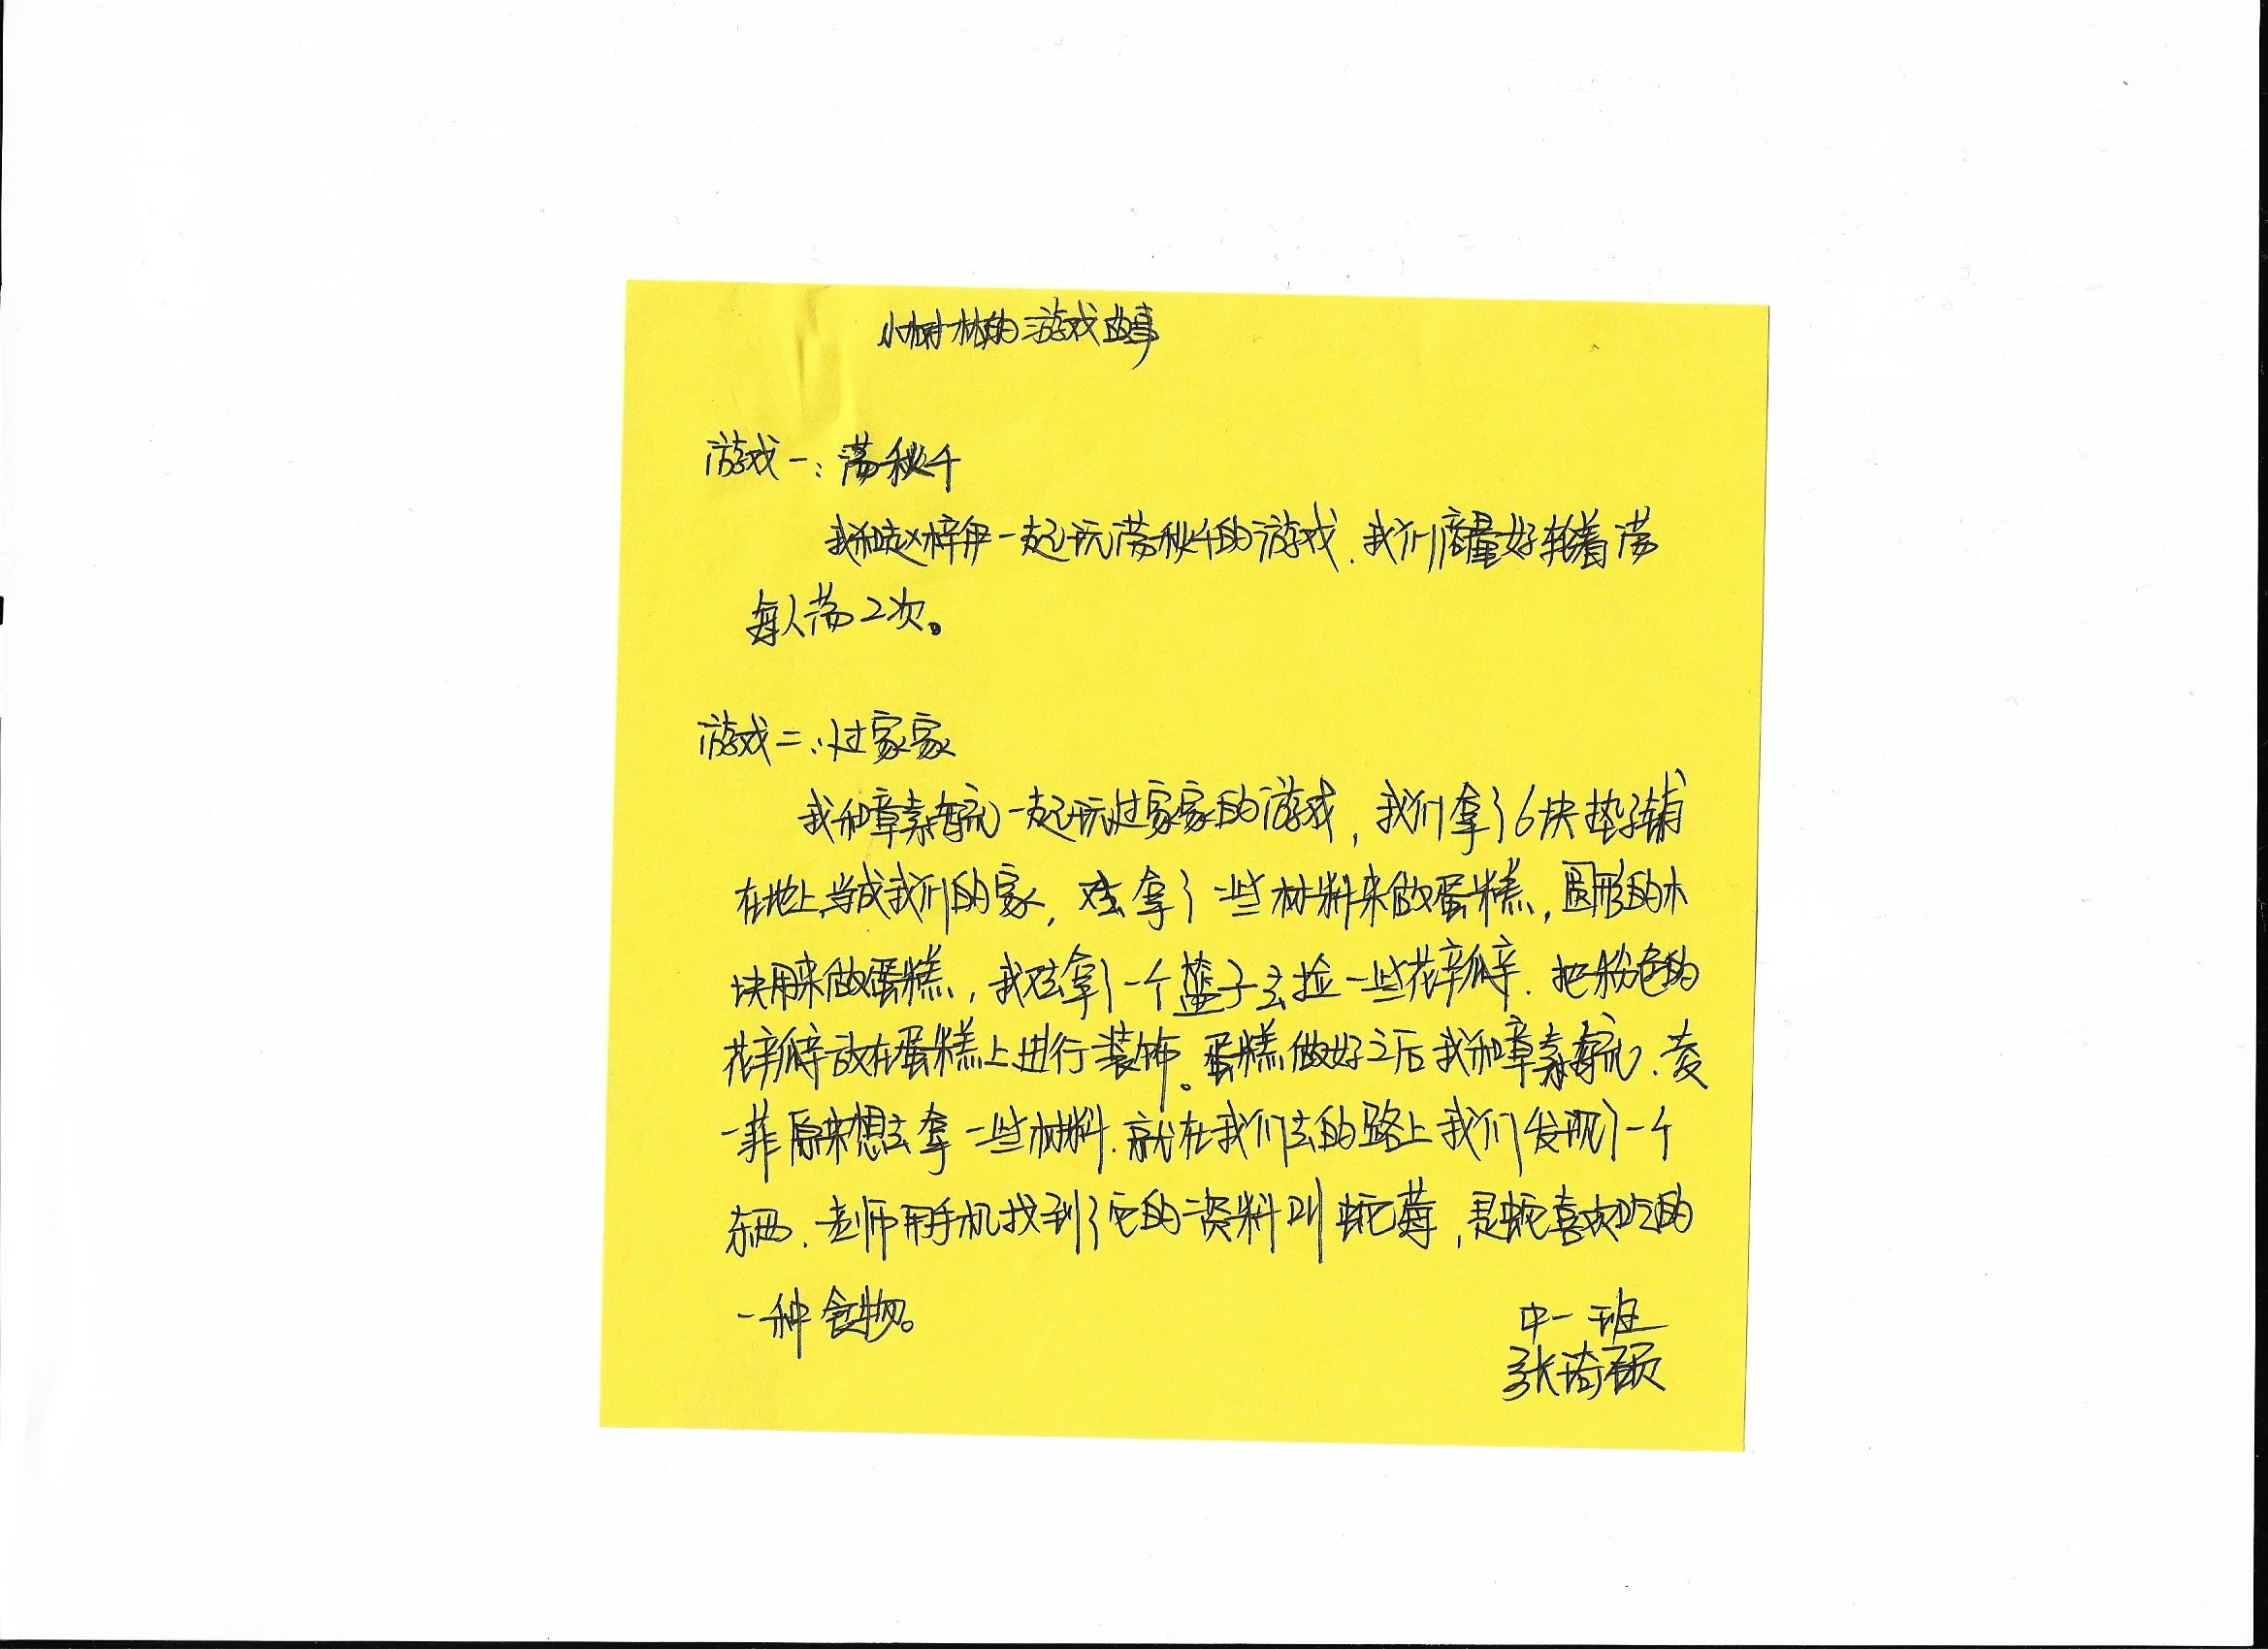 小树林的游戏故事
游戏一：荡秋千
我和赵梓伊一起玩荡秋千的游戏．我们商量好轮着荡
每人荡2次。
游戏二：过家家
我和章素一起玩过家家的游戏，我们拿了6块垫子铺
在地上，当成我们的家，还去拿了一些材料来做蛋糕，圆形的木
块用来做蛋糕，我还去拿了一个篮子去捡一些花瓣．把粉色的
花瓣放在蛋糕上进行装饰。蛋糕做好之后我和章素．麦
一菲原来想去拿一些材料．就在我们去的路上我们发现了一个
东西．老师用手机找到了它的资料叫蛇莓，是蛇喜欢吃的
一种食物。
中一班
张诗硕